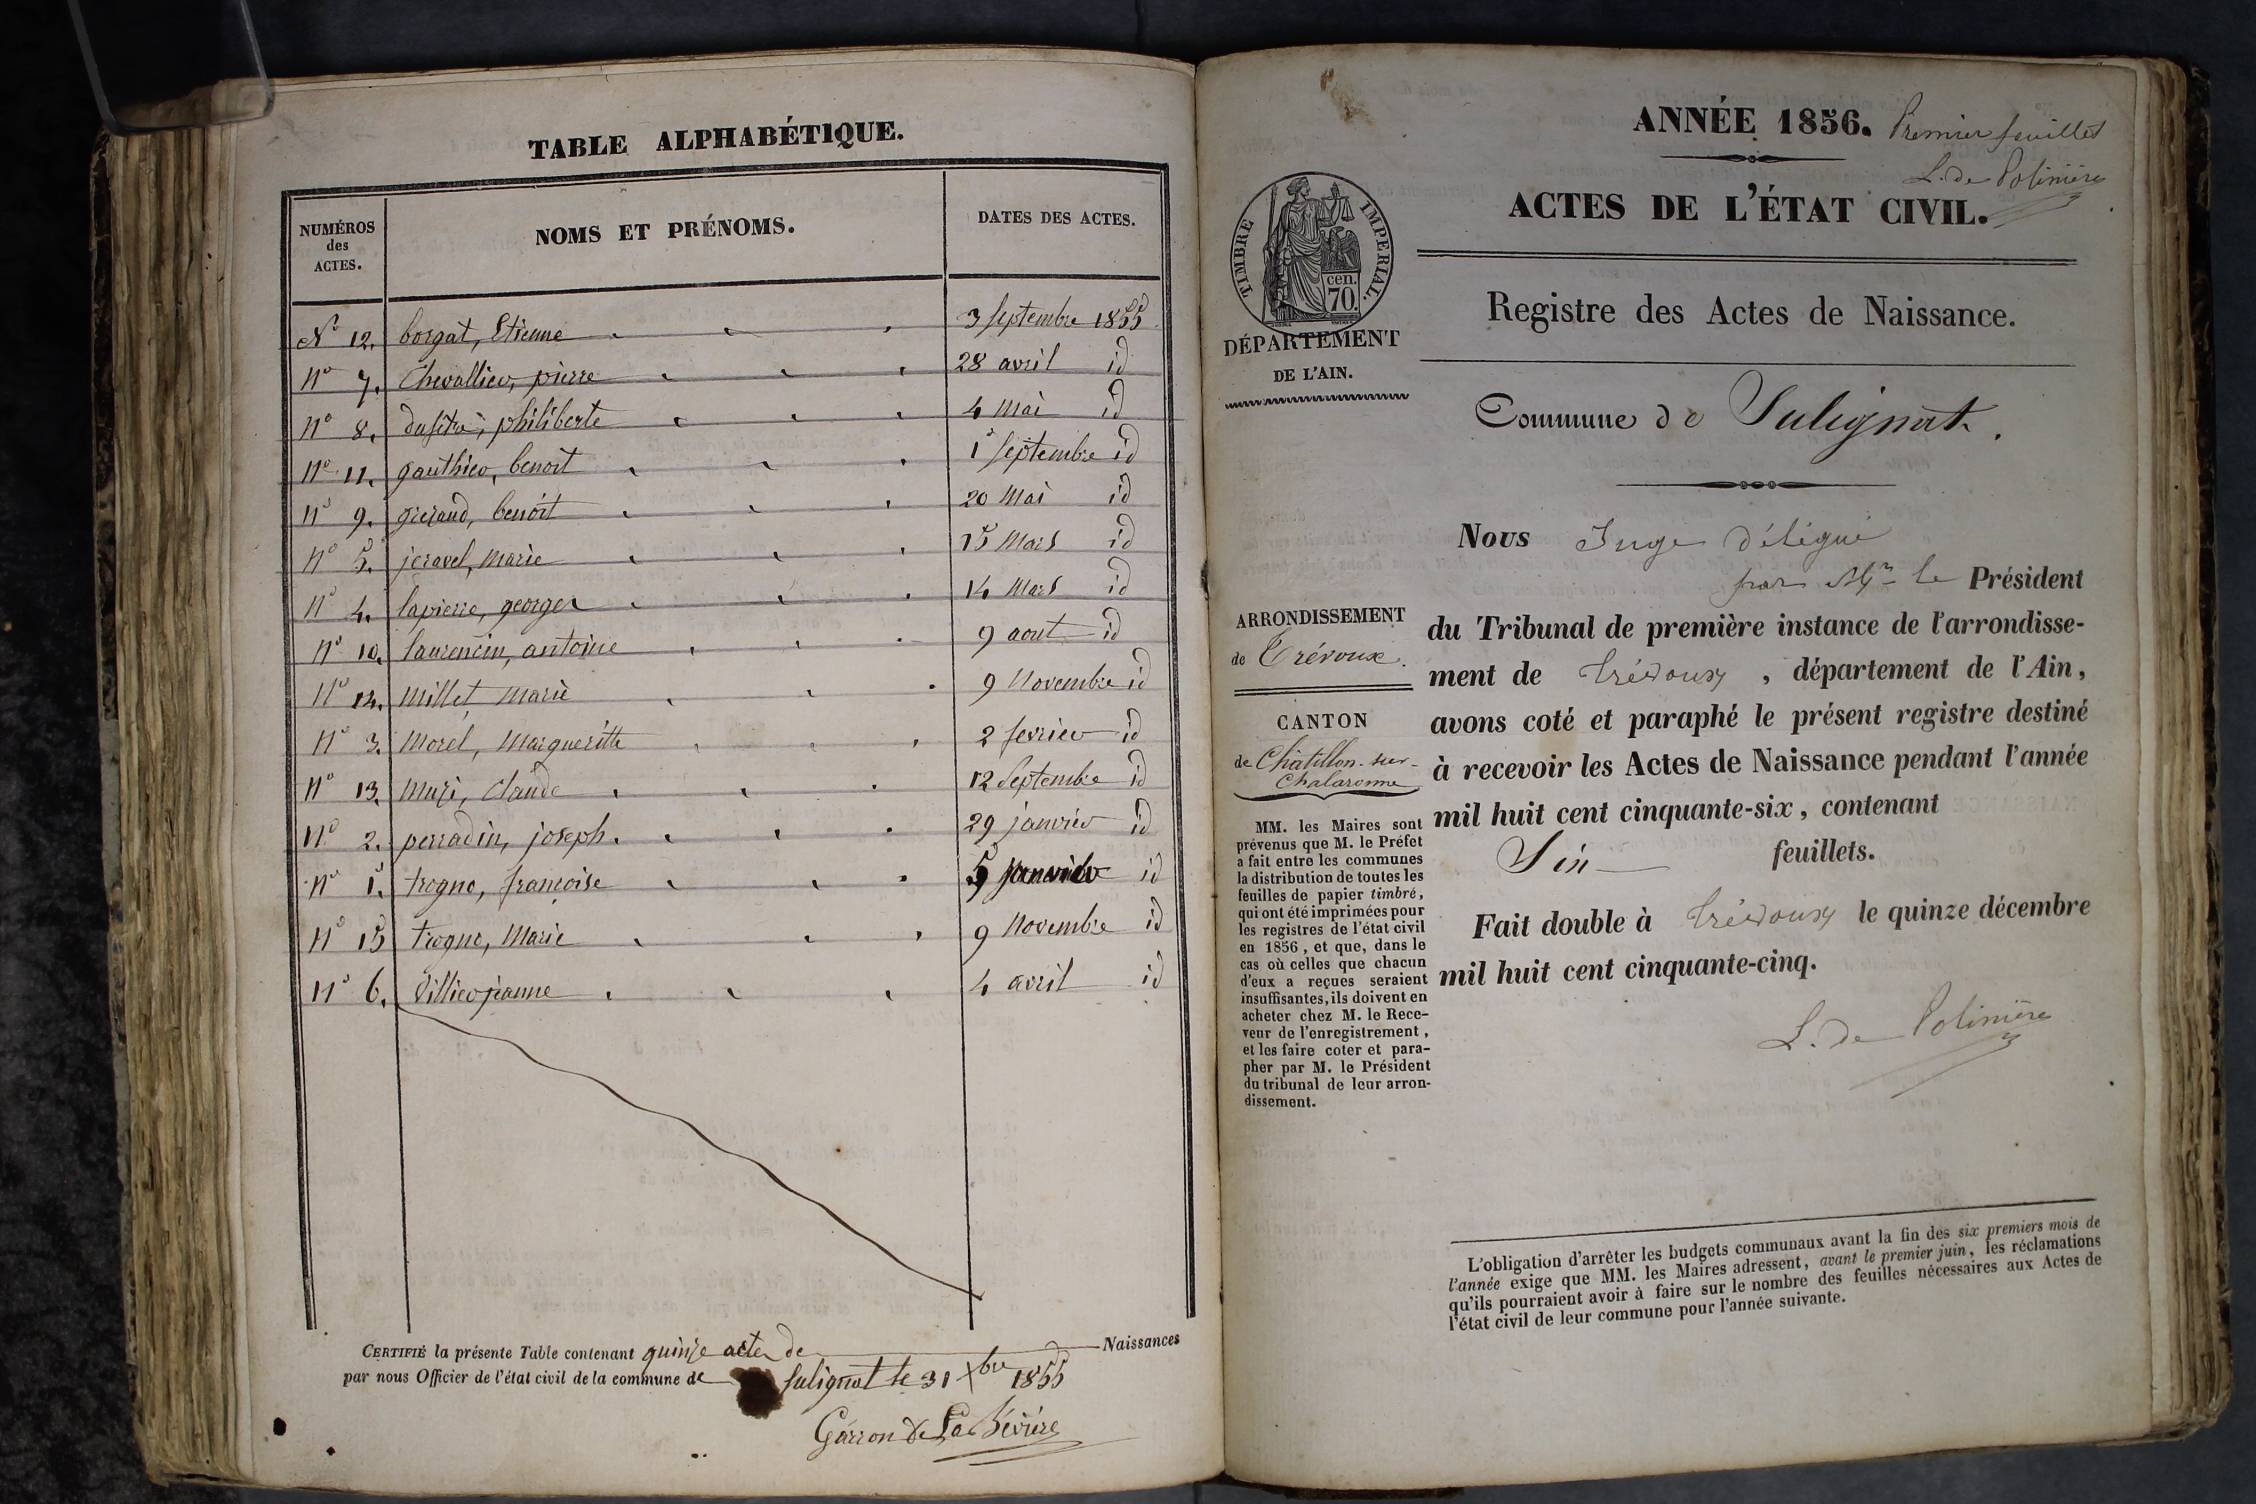 TABLE ALPHABÉTIQUE.
NUMÉROS des ACTES. NOMS ET PRÉNOMS. DATES DES ACTES.
N° 12. borgat, Etienne 3 Septembre 1855
N° 7. Chevallier, pierre 28 avril id
N° 8. philiberte 4 Mai id
N° 11. gauthier, benoit 1 Septembre id
N° 9. benoit 20 Mai id
N° 5. jeravel, Marie 15 Mars id
N° 4. lapierre, george 14 Mars id
N° 10. laurencin, antoine 9 aout id
N° 14. Millet Marie 9 Novembre id
N° 3. Morel, Margueritte 2 fevrier id
N° 13. Claude 12 Septembre id
N° 2. perradin, joseph. 29 janvier id
N° 1. trogne, françoise 5 janvier id
N° 15 trogne, Marie 9 Novembre id
N° 6. Villier jeanne 4 avril id
CERTIFIÉ la présente Table contenant quinze actes de Naissances
par nous Officier de l'état civil de la commune de Sulignat le 31 Xbre 1855
Garron de La Bévière
ANNÉE 1856. Premier feuillet
L. de Polinière
ACTES DE L'ÉTAT CIVIL.
TIMBRE IMPERIAL.
cen.
70.
DÉPARTEMENT
DE L'AIN.
Registre des Actes de Naissance.
Commune de Sulignat.
Nous Juge délégué
par Mr le Président
du Tribunal de première instance de l'arrondisse-
ment de Trévoux, département de l'Ain,
avons coté et paraphé le présent registre destiné
à recevoir les Actes de Naissance pendant l'année
mil huit cent cinquante-six, contenant
Six feuillets.
Fait double à Trévoux le quinze décembre
mil huit cent cinquante-cinq.
L. de Polinière
ARRONDISSEMENT
de Trévoux.
CANTON
de Châtillon-sur-
Chalaronne
MM. les Maires sont
prévenus que M. le Préfet
a fait entre les communes
la distribution de toutes les
feuilles de papier timbré,
qui ont été imprimées pour
les registres de l'état civil
en 1856, et que, dans le
cas où celles que chacun
d'eux a reçues seraient
insuffisantes, ils doivent en
acheter chez M. le Rece-
veur de l'enregistrement,
et les faire coter et para-
pher par M. le Président
du tribunal de leur arron-
dissement.
L'obligation d'arrêter les budgets communaux avant la fin des six premiers mois de
l'année exige que MM. les Maires adressent, avant le premier juin, les réclamations
qu'ils pourraient avoir à faire sur le nombre des feuilles nécessaires aux Actes de
l'état civil de leur commune pour l'année suivante.